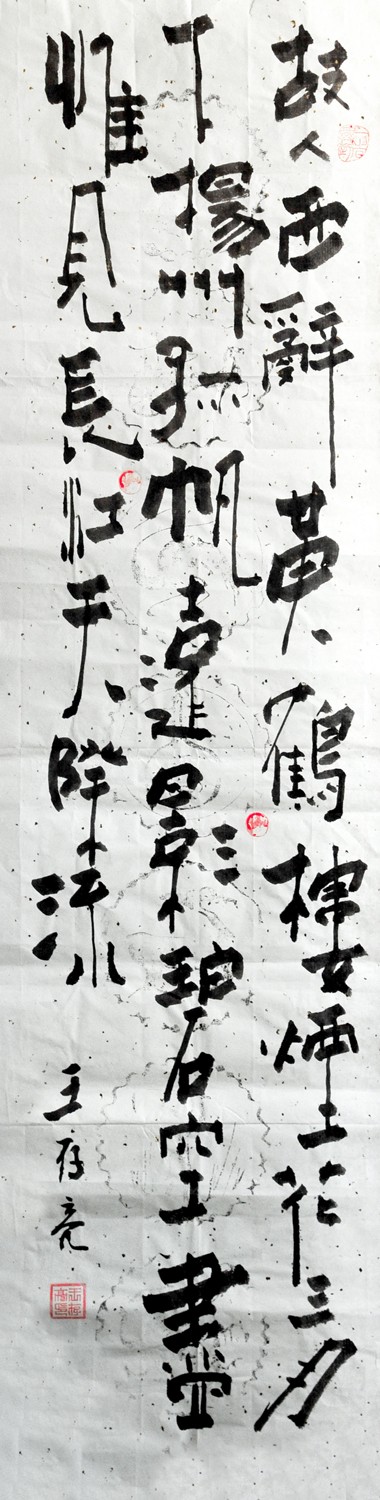 故人西辭黃鶴樓煙花三月
下揚州孤帆遠影碧空盡
惟見長江天際流
王存亮